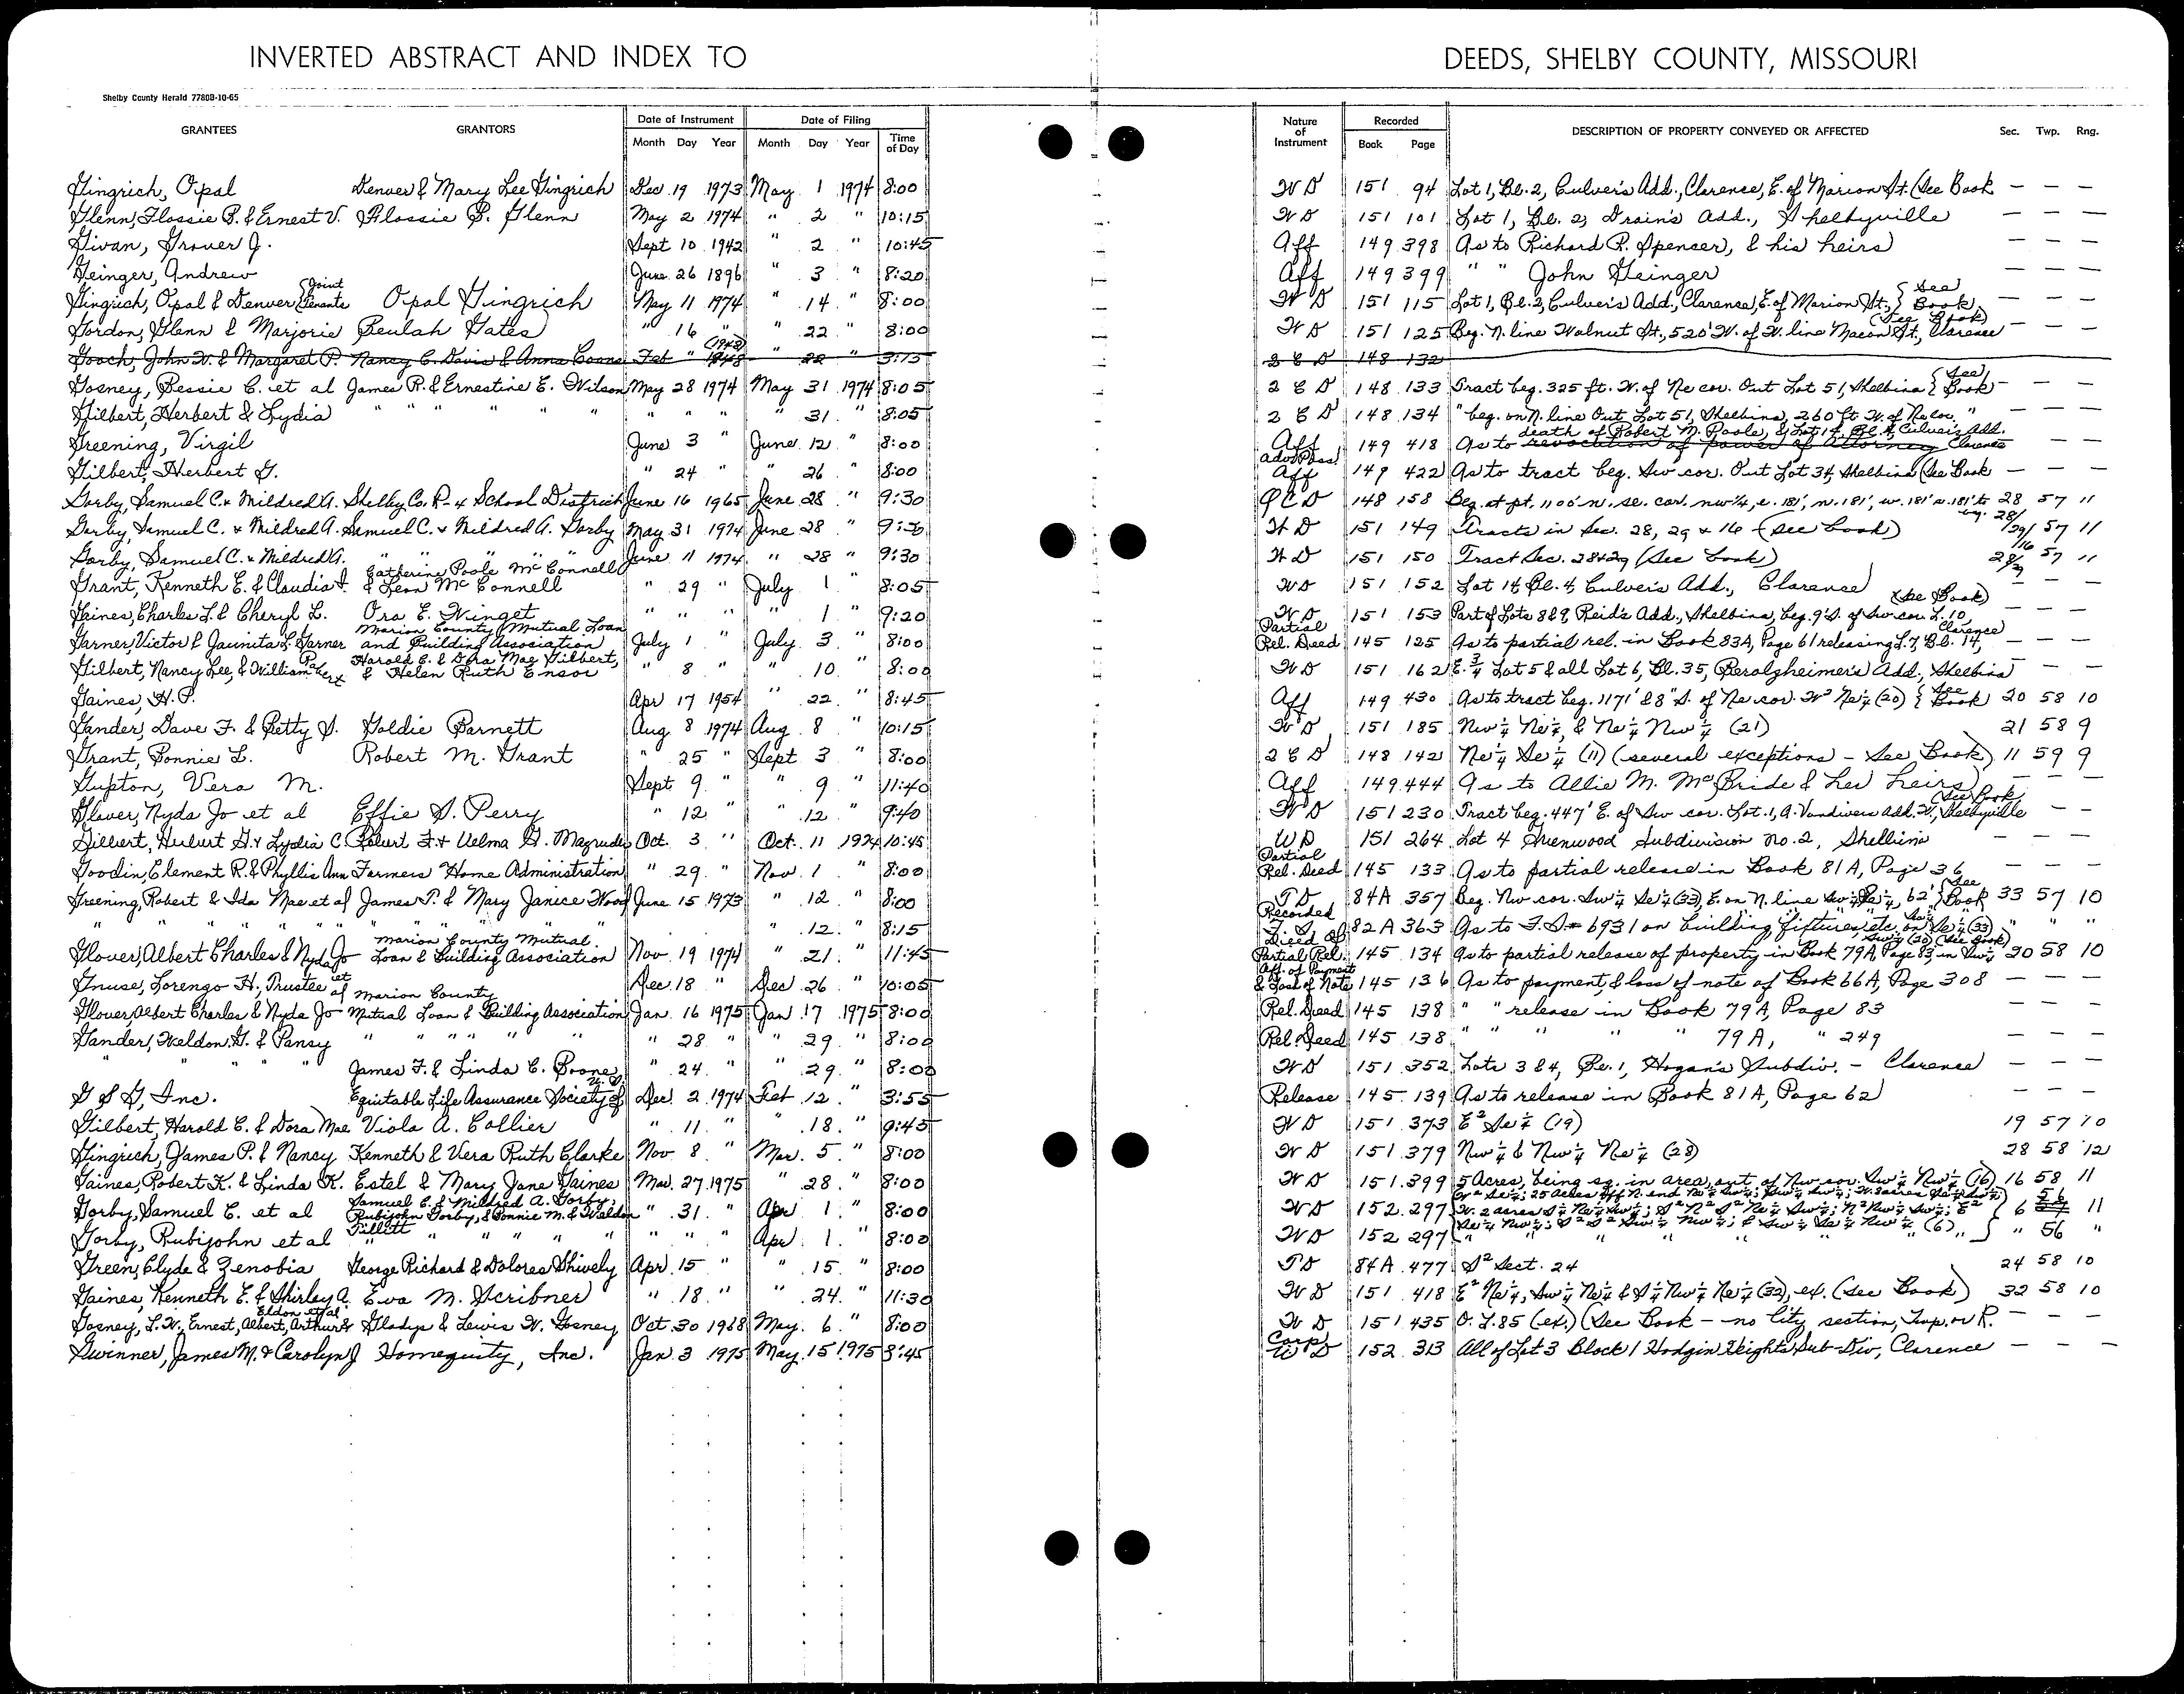 INVERTED ABSTRACT AND INDEX TO DEEDS, SHELBY COUNTY, MISSOURI
Shelby County Herald 7780B-10-65
GRANTEES GRANTORS Date of Instrument Date of Filing Nature of Instrument Recorded DESCRIPTION OF PROPERTY CONVEYED OR AFFECTED Sec. Twp. Rng.
Month Day Year Month Day Year Time of Day Book Page
Gingrich, Opal Denver & Mary Lee Gingrich Dec. 19 1973 May 1 1974 8:00 W D 151 94 Lot 1, Bl. 2, Culver's Add., Clarence, E. of Marion St. (See Book — — —
Glenn, Flossie B. & Ernest V. Flossie B. Glenn May 2 1974 " 2 " 10:15 W D 151 101 Lot 1, Bl. 2, Drain's Add., Shelbyville — — —
Givan, Grover J. Sept 10 1942 " 2 " 10:45 Aff 149 398 As to Richard P. Spencer, & his heirs — — —
Geinger, Andrew June 26 1896 " 3 " 8:20 Aff 149 399 " " John Geinger — — —
Gingrich, Opal & Denver (Joint Tenants Opal Gingrich May 11 1974 " 14 " 8:00 W D 151 115 Lot 1, Bl. 2, Culver's Add., Clarence, E. of Marion St., } See Book — — —
Gordon, Glenn & Marjorie Beulah Gates " 16 " " 22 " 8:00 W D 151 125 Beg. N. line Walnut St., 520' W. of W. line Macon St., Clarence (See Book) — — —
Gooch, John W. & Margaret P. Nancy C. Davis & Anna Evans Feb " 1948 (1948) " 22 " 3:15 2 C D 148 132
Gosney, Bessie C. et al James R. & Ernestine E. Wilson May 28 1974 May 31 1974 8:05 2 C D 148 133 Tract beg. 325 ft. W. of Ne cor. Out Lot 51, Shelbina { See Book — — —
Gilbert, Herbert & Lydia " " " " " " " " 31 " 8:05 2 C D 148 134 " beg. on N. line Out Lot 51, Shelbina, 260 ft W. of Ne cor. " — — —
Greening, Virgil June 3 " June 12 " 8:00 Aff 149 418 As to revocation of power of attorney death of Robert M. Poole, & Lot 14, Bl. 4, Culver's Add. Clarence — — —
Gilbert, Herbert G. " 24 " 26 " 8:00 Adv. Poss. Aff 149 422 As to tract beg. Sw cor. Out Lot 34, Shelbina (See Book — — —
Gorby, Samuel C. & Mildred A. Shelby Co. R-4 School District June 16 1965 June 28 " 9:30 Q C D 148 158 Beg. at pt. 1106' n. se. cor. nw 1/4, e. 181', n. 181', w. 181' s. 181' to beg. 28 57 11
Gorby, Samuel C. & Mildred A. Samuel C. & Mildred A. Gorby May 31 1974 June 28 " 9:30 W D 151 149 Tracts in Sec. 28, 29 & 16 (See book) 28/29/16 57 11
Gorby, Samuel C. & Mildred A. " " " " June 11 1974 " 28 " 9:30 W D 151 150 Tract Sec. 28 & 29 (See book) 28/29 57 11
Grant, Kenneth E. & Claudia J. Catherine Poole McConnell & Leon McConnell " 29 " July 1 " 8:05 WD 151 152 Lot 14, Bl. 4, Culver's Add., Clarence — —
Gaines, Charles L. & Cheryl L. Ora E. Winget " " " " 1 " 9:20 W D 151 153 Part of Lots 8 & 9, Reid's Add., Shelbina, beg. 9' S. of Sw cor. L. 10, (See Book) — — —
Garner, Victor & Jaunita L. Garner Marion County Mutual Loan and Building Association July 1 " July 3 " 8:00 Partial Rel. Deed 145 125 As to partial rel. in Book 83A, Page 61 releasing L. 7, Bl. 14, Clarence — — —
Gilbert, Nancy Lee, & William Robert Harold C. & Dora Mae Gilbert, & Helen Ruth Ensor " 8 " " 10 " 8:00 W D 151 162 E. 3/4 Lot 5 & all Lot 6, Bl. 35, Beralzheimer's Add., Shelbina — — —
Gaines, H. P. Apr 17 1954 " 22 " 8:45 Aff 149 430 As to tract beg. 1171' & 8" S. of Ne cor. W² Ne¼ (20) { See Book 20 58 10
Gander, Dave F. & Betty S. Goldie Barnett Aug 8 1974 Aug. 8 " 10:15 W D 151 185 Nw¼ Ne¼, & Ne¼ Nw¼ (21) 21 58 9
Grant, Bonnie L. Robert M. Grant " 25 " Sept 3 " 8:00 2 C D 148 142 Ne¼ Se¼ (11) (several exceptions - See Book) 11 59 9
Gupton, Vera M. Sept 9 " " 9 " 11:40 Aff 149 444 As to Allie M. McBride & her heirs — — —
Glover, Nyda Jo et al Effie S. Perry " 12 " 12 " 9:40 W D 151 230 Tract beg. 447' E. of Sw cor. Lot 1, A. Vandivers Add. W., Shelbyville (See Book — —
Gilbert, Herbert G. & Lydia C. Robert F. & Velma G. Magruder Oct. 3 " Oct. 11 1974 10:45 WD 151 264 Lot 4 Greenwood Subdivision No. 2, Shelbina — — —
Goodin, Clement R. & Phyllis Ann Farmers Home Administration " 29 " Nov. 1 " 8:00 Partial Rel. Deed 145 133 As to partial release in Book 81 A, Page 36 — — —
Greening, Robert & Ida Mae et al James T. & Mary Janice Wood June 15 1973 " 12 " 8:00 T D 84A 357 Beg. Nw cor. Sw¼ Se¼ (33), E. on N. line Sw¼ Se¼, 62' } See Book 33 57 10
" " " " " " " " " 12 " 8:15 Recorded F. S. 82A 363 As to F.S# 6931 on building fixtures, etc. on Se¼ (33) " " "
Glover, Albert Charles & Nyda Jo Marion County Mutual Loan & Building Association Nov. 19 1974 " 21 " 11:45 Deed of Partial Rel. 145 134 As to partial release of property in Book 79A, Page 83, in Sw¼ Sw¼ (20) (See Book) 20 58 10
Gnuse, Lorengo H., Trustee et al Dec. 18 " Dec 26 " 10:05 Aff. of Payment & Loss of Note 145 136 As to payment, & loss of note of Book 66A, Page 308 — — —
Glover, Albert Charles & Nyda Jo Marion County Mutual Loan & Building Association Jan. 16 1975 Jan 17 1975 8:00 Rel. Deed 145 138 " " release in Book 79 A, Page 83 — — —
Gander, Weldon G. & Pansy " " " " " " 28 " " 29 " 8:00 Rel. Deed 145 138 " " " " " 79 A, " 249 — — —
" " " " James F. & Linda C. Boone " 24 " " 29 " 8:00 W D 151 352 Lots 3 & 4, Bl. 1, Hogan's Subdiv. - Clarence — — —
G & G, Inc. Equitable Life Assurance Society of U.S. Dec. 2 1974 Feb. 12 " 3:55 Release 145 139 As to release in Book 81 A, Page 62 — — —
Gilbert, Harold C. & Dora Mae Viola A. Collier " 11 " 18 " 9:45 W D 151 373 E² Se¼ (19) 19 57 10
Gingrich, James P. & Nancy Kenneth & Vera Ruth Clarke Nov. 8 " Mar. 5 " 8:00 W D 151 379 Nw¼ & Nw¼ Ne¼ (28) 28 58 12
Gaines, Robert K. & Linda K. Estel & Mary Jane Gaines Mar. 27 1975 " 28 " 8:00 W D 151 399 5 Acres, being sq. in area, out of Nw cor. Sw¼ Nw¼ (16) 16 58 11
Gorby, Samuel C. et al Samuel C. & Mildred A. Gorby, Rubijohn Gorby, & Bonnie M. & Weldon Tillett " 31 " Apr 1 " 8:00 W D 152 297 W² Se¼; 25 Acres off N. end Ne¼ Sw¼; W. 2 acres S² Ne¼ Sw¼; { 6 56 11
Gorby, Rubijohn et al " " " " " " " " Apr 1 " 8:00 W D 152 297 " " " " " } " 56 "
Green, Clyde & Zenobia George Richard & Dolores Shively Apr. 15 " " 15 " 8:00 T D 84A 477 S² Sect. 24 24 58 10
Gaines, Kenneth E. & Shirley A. Eva M. Scribner " 18 " " 24 " 11:30 W D 151 418 E² Ne¼, Sw¼ Ne¼ & S½ Nw¼ Ne¼ (32), ex. (See Book) 32 58 10
Gosney, L. W., Ernest, Albert, Arthur & Eldon et al Gladys & Lewis W. Gosney Oct 30 1968 May. 6 " 8:00 W D 151 435 O. L. 85 (ex.) (See Book - no City, section, Twp. or R. — — —
Gwinner, James M. & Carolyn J Homequity, Inc. Jan 3 1975 May. 15 1975 8:45 Corp W D 152 313 All of Lot 3 Block 1 Hodgin Heights Sub-Div, Clarence — — —